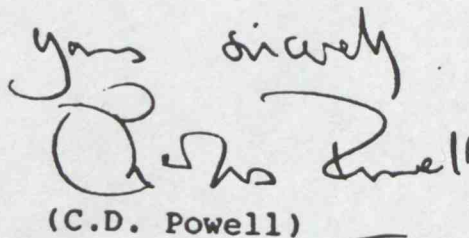 Yours sincerely
Charles Powell
(C.D. Powell)